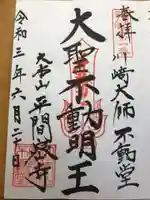 奉拝
川崎大師 不動堂
大聖不動明王
大本山 平間寺
令和三年六月二十日